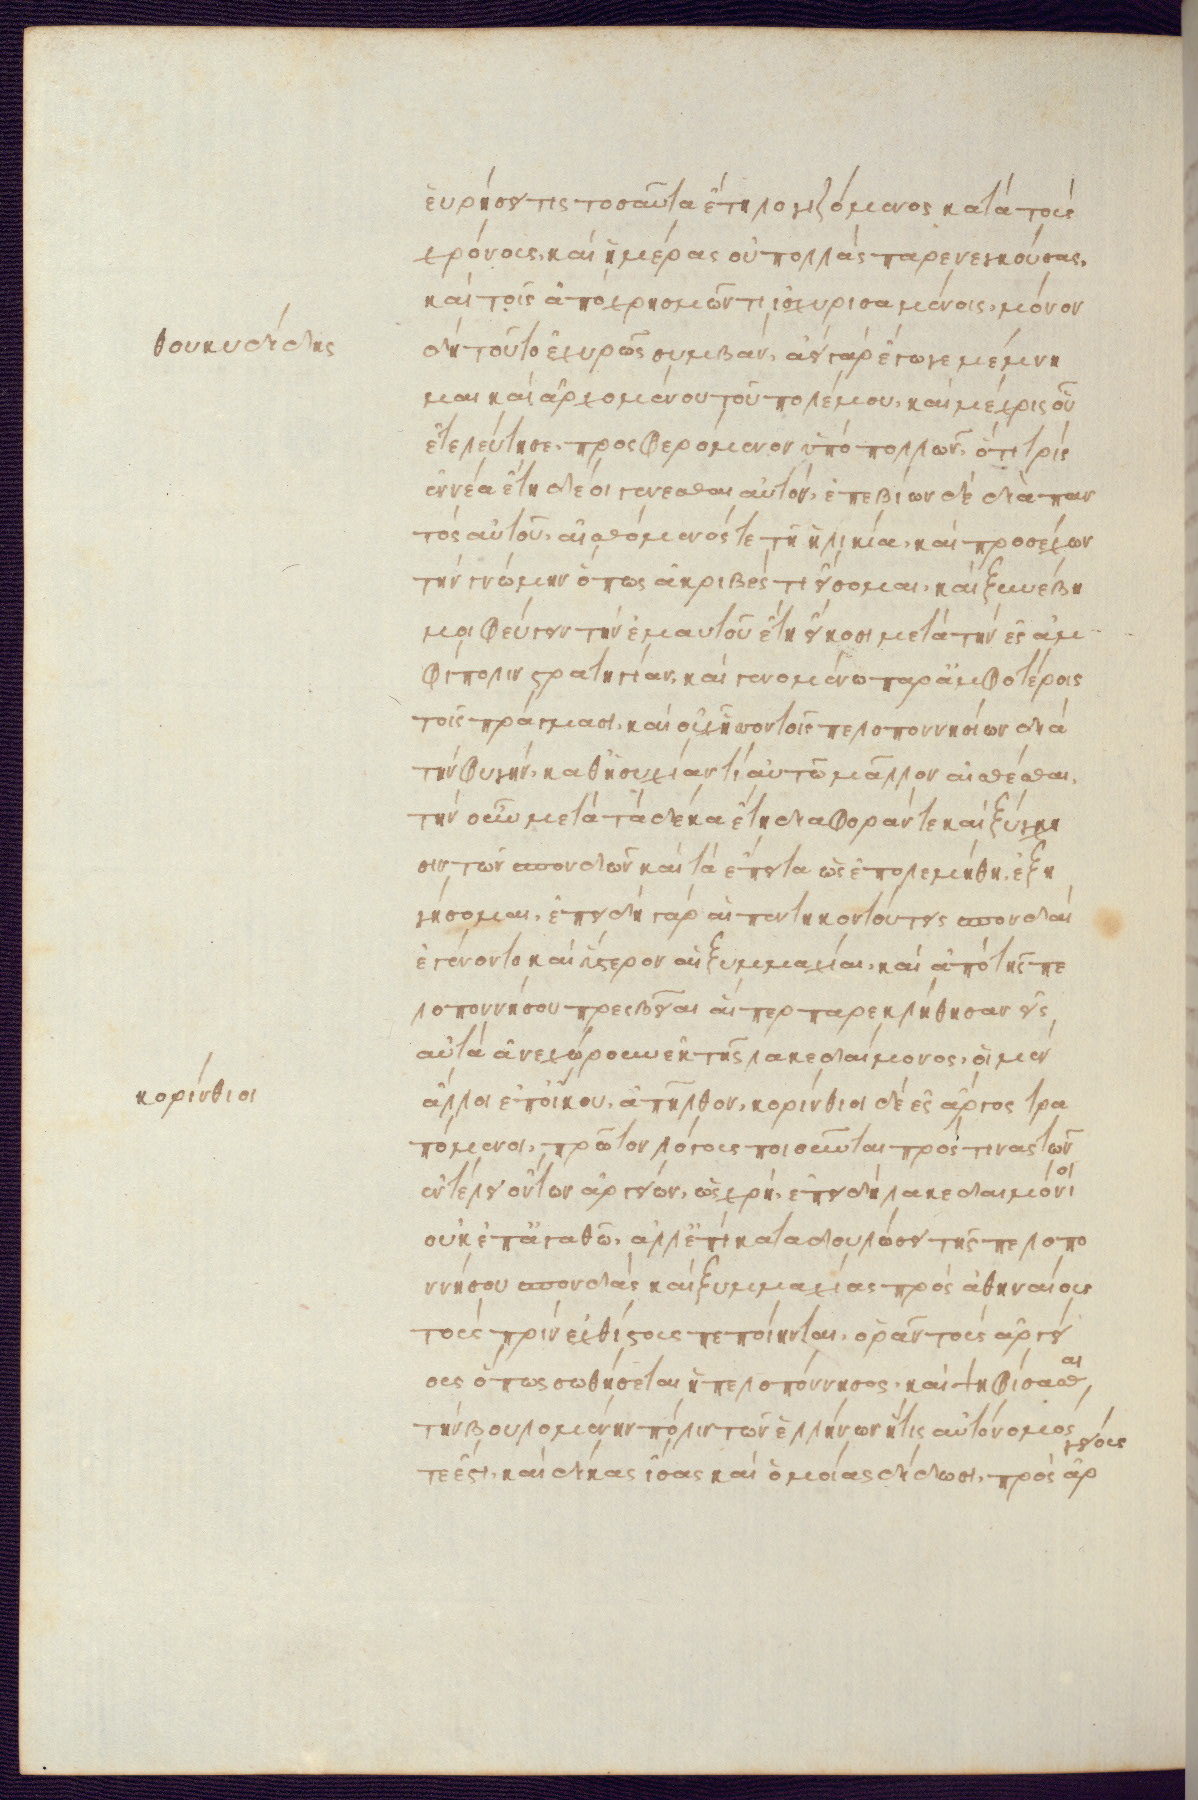 ἑυρήσει τις τοσαῦτα ἔτη λογιζόμενος κατὰ τοὺς
χρόνους, καὶ ἡμέρας οὐ πολλὰς παρενεγκούσας,
καὶ τοῖς ἀπὸ χρησμῶν τι ἰσχυρισαμένοις, μόνον
θουκυδίδης
δὴ τοῦτο ἐχυρῶς συμβάν, ἀεὶ γὰρ ἔγωγε μέμνη
μαι καὶ ἀρχομένου τοῦ πολέμου, καὶ μέχρις οὗ
ἐτελεύτησε, προσφερόμενον ὑπὸ πολλῶν, ὅτι τρὶς
ἐννέα ἔτη δέοι γενέσθαι αὐτόν, ἐπεβίων δὲ διὰ παν
τὸς αὐτοῦ, αἰσθόμενός τε τῇ ἡλικία, καὶ προσέχων
τὴν γνώμην ὅπως ἀκριβές τι εἴσομαι, καὶ ξυνέβη
μοι φεύγειν τὴν ἐμαυτοῦ ἔτη εἴκοσι μετὰ τὴν ἐς ἀμ
φίπολιν στρατηγίαν, καὶ γενομένω παρ' ἀμφοτέροις
τοῖς πράγμασι, καὶ οὐχ ἧσσον τοῖς πελοποννησίων διὰ
τὴν φυγήν, καθ' ἡσυχίαν τί αὐτῶ μᾶλλον αἰσθέσθαι,
τὴν οὖν μετὰ τὰ δέκα ἔτη διαφοράν τε καὶ ξύγχη
σιν τῶν σπονδῶν καὶ τὰ ἔπειτα ὡς ἐπολεμήθη, ἐξη
γήσομαι, ἐπειδὴ γὰρ αἱ πεντηκοντούτεις σπονδαὶ
ἐγένοντο καὶ ὕστερον αἱ ξυμμαχίαι, καὶ ἀπὸ τῆς πε
λοποννήσου πρεσβεῖαι αἵπερ παρεκλήθησαν ἐς
αὐτὰ ἀνεχώρουν ἐκ τῆς λακεδαίμονος, οἱ μὲν
κορίνθιοι
ἄλλοι ἐπ' οἴκου, ἀπῆλθον, κορίνθιοι δὲ ἐς ἄργος τρα
πόμενοι, πρῶτον λόγους ποιοῦνται πρός τινας τῶν
ἐν τέλει ὄντων ἀργείων, ὡς χρή, ἐπειδὴ λακεδαιμόνιοι
οὐκ ἐπ' ἀγαθῶ, ἀλλ' ἐπὶ καταδουλώσει τῆς πελοπο
ννήσου σπονδὰς καὶ ξυμμαχίας πρὸς ἀθηναίους
τοὺς πρὶν ἐχθίστους πεποίηνται, ὁρᾶν τοὺς ἀργεί
ους ὅπως σωθήσεται ἡ πελοπόννησος, καὶ ψηφίσασθαι
τὴν βουλομένην πόλιν τῶν ἑλλήνων ἥτις αὐτόνομός
τε ἐστι, καὶ δίκας ἴσας καὶ ὁμοίας δίδωσι, πρὸς ἀρ
γείους